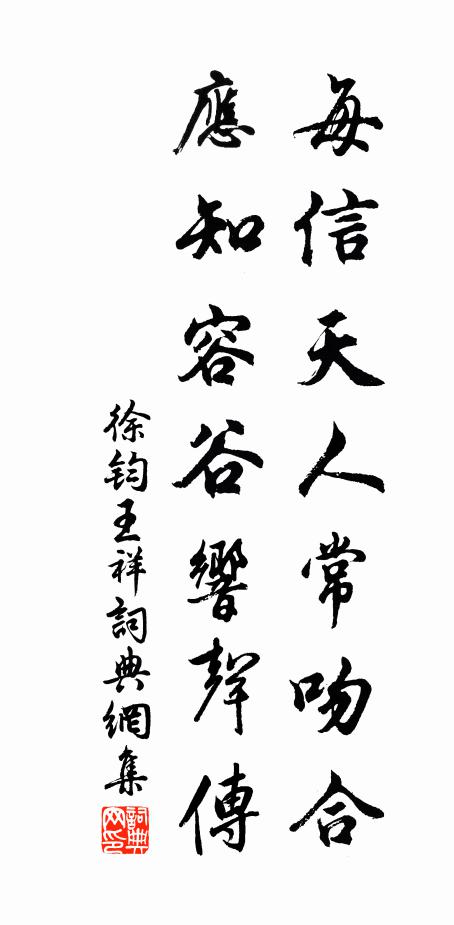 每信天人常吻合
應知容谷響聲傳
徐鈞王祥詞典網集
詞典網印